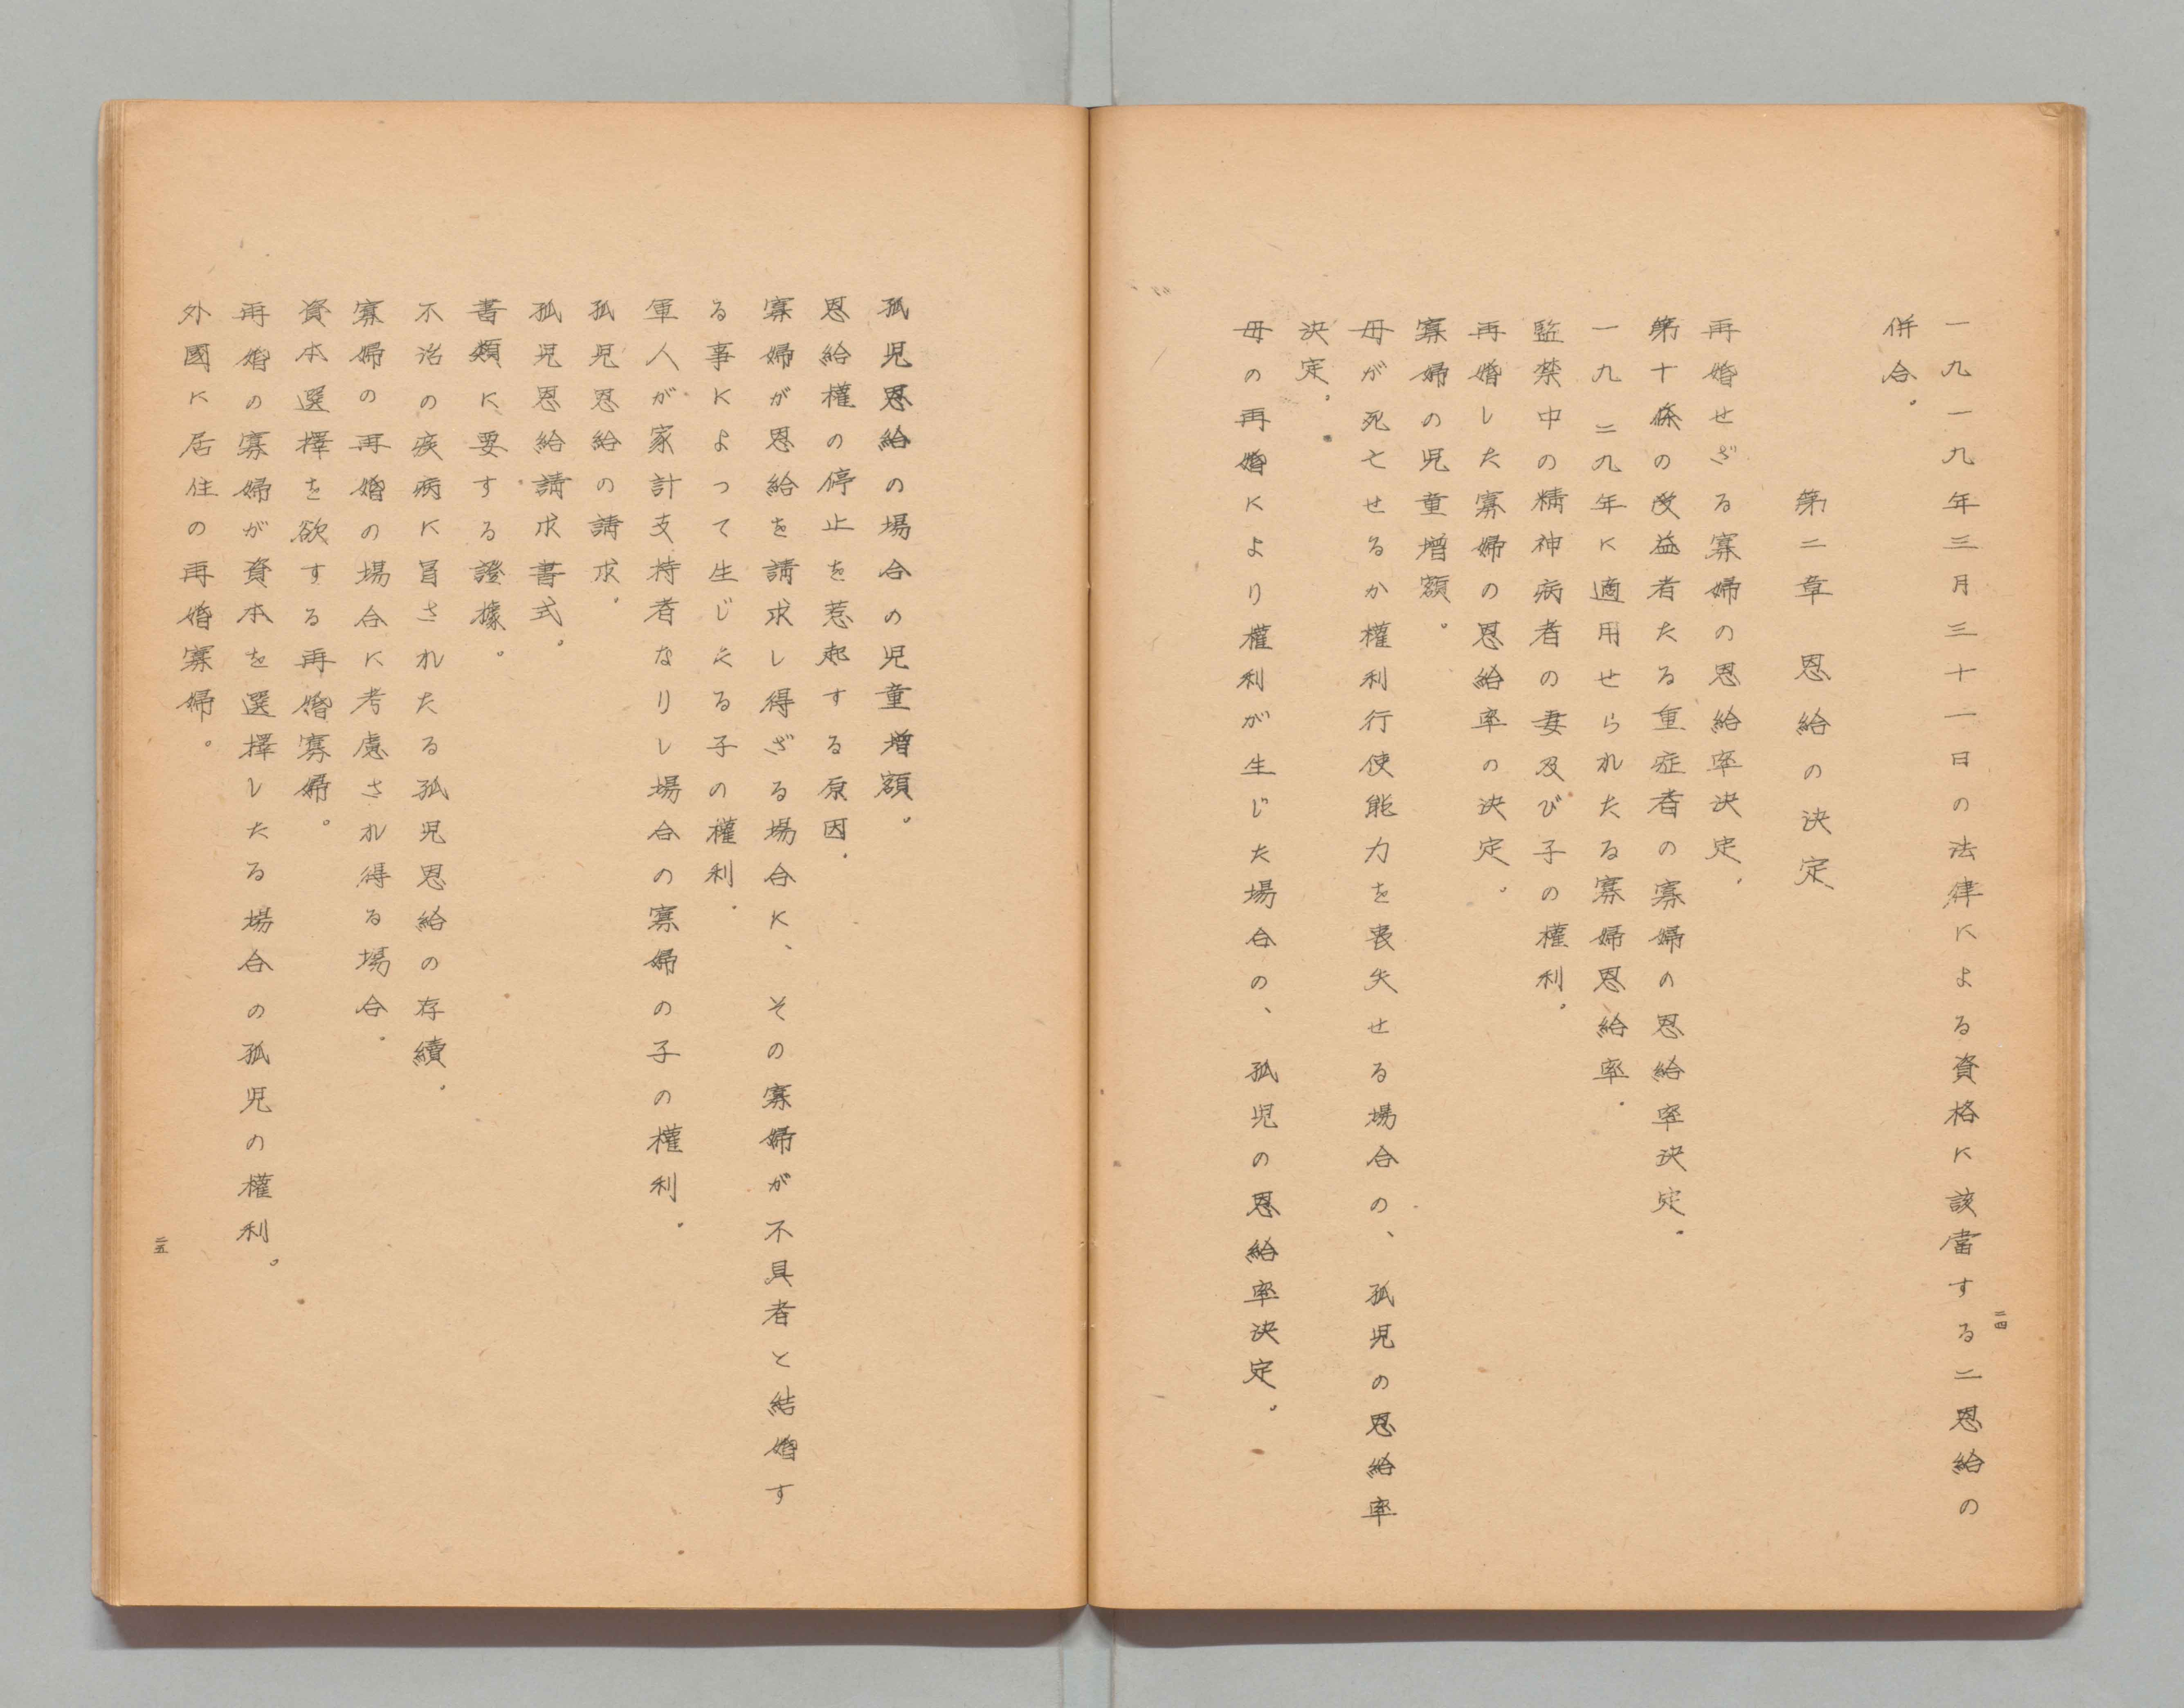 一九一九年三月三十一日の法律による資格に該當する二恩給の
併合。
第二章　恩給の決定
再婚せざる寡婦の恩給率決定。
第十條の改益者たる重症者の寡婦の恩給率決定。
一九二九年に適用せられたる寡婦恩給率。
監禁中の精神病者の妻及び子の權利。
再婚した寡婦の恩給率の決定。
寡婦の児童増額。
母が死亡せるか權利行使能力を喪失せる場合の、孤児の恩給率
決定。
母の再婚により權利が生じた場合の、孤児の恩給率決定。
二四
孤児恩給の場合の児童増額。
恩給權の停止を惹起する原因。
寡婦が恩給を請求し得ざる場合に、その寡婦が不具者と結婚す
る事によって生じたる子の權利。
軍人が家計支持者なりし場合の寡婦の子の權利。
孤児恩給の請求。
孤児恩給請求書式。
書類に要する證據。
不治の疾病に冒されたる孤児恩給の存續。
寡婦の再婚の場合に考慮され得る場合。
資本選擇を欲する再婚寡婦。
再婚の寡婦が資本を選擇したる場合の孤児の權利。
外國に居住の再婚寡婦。
二五